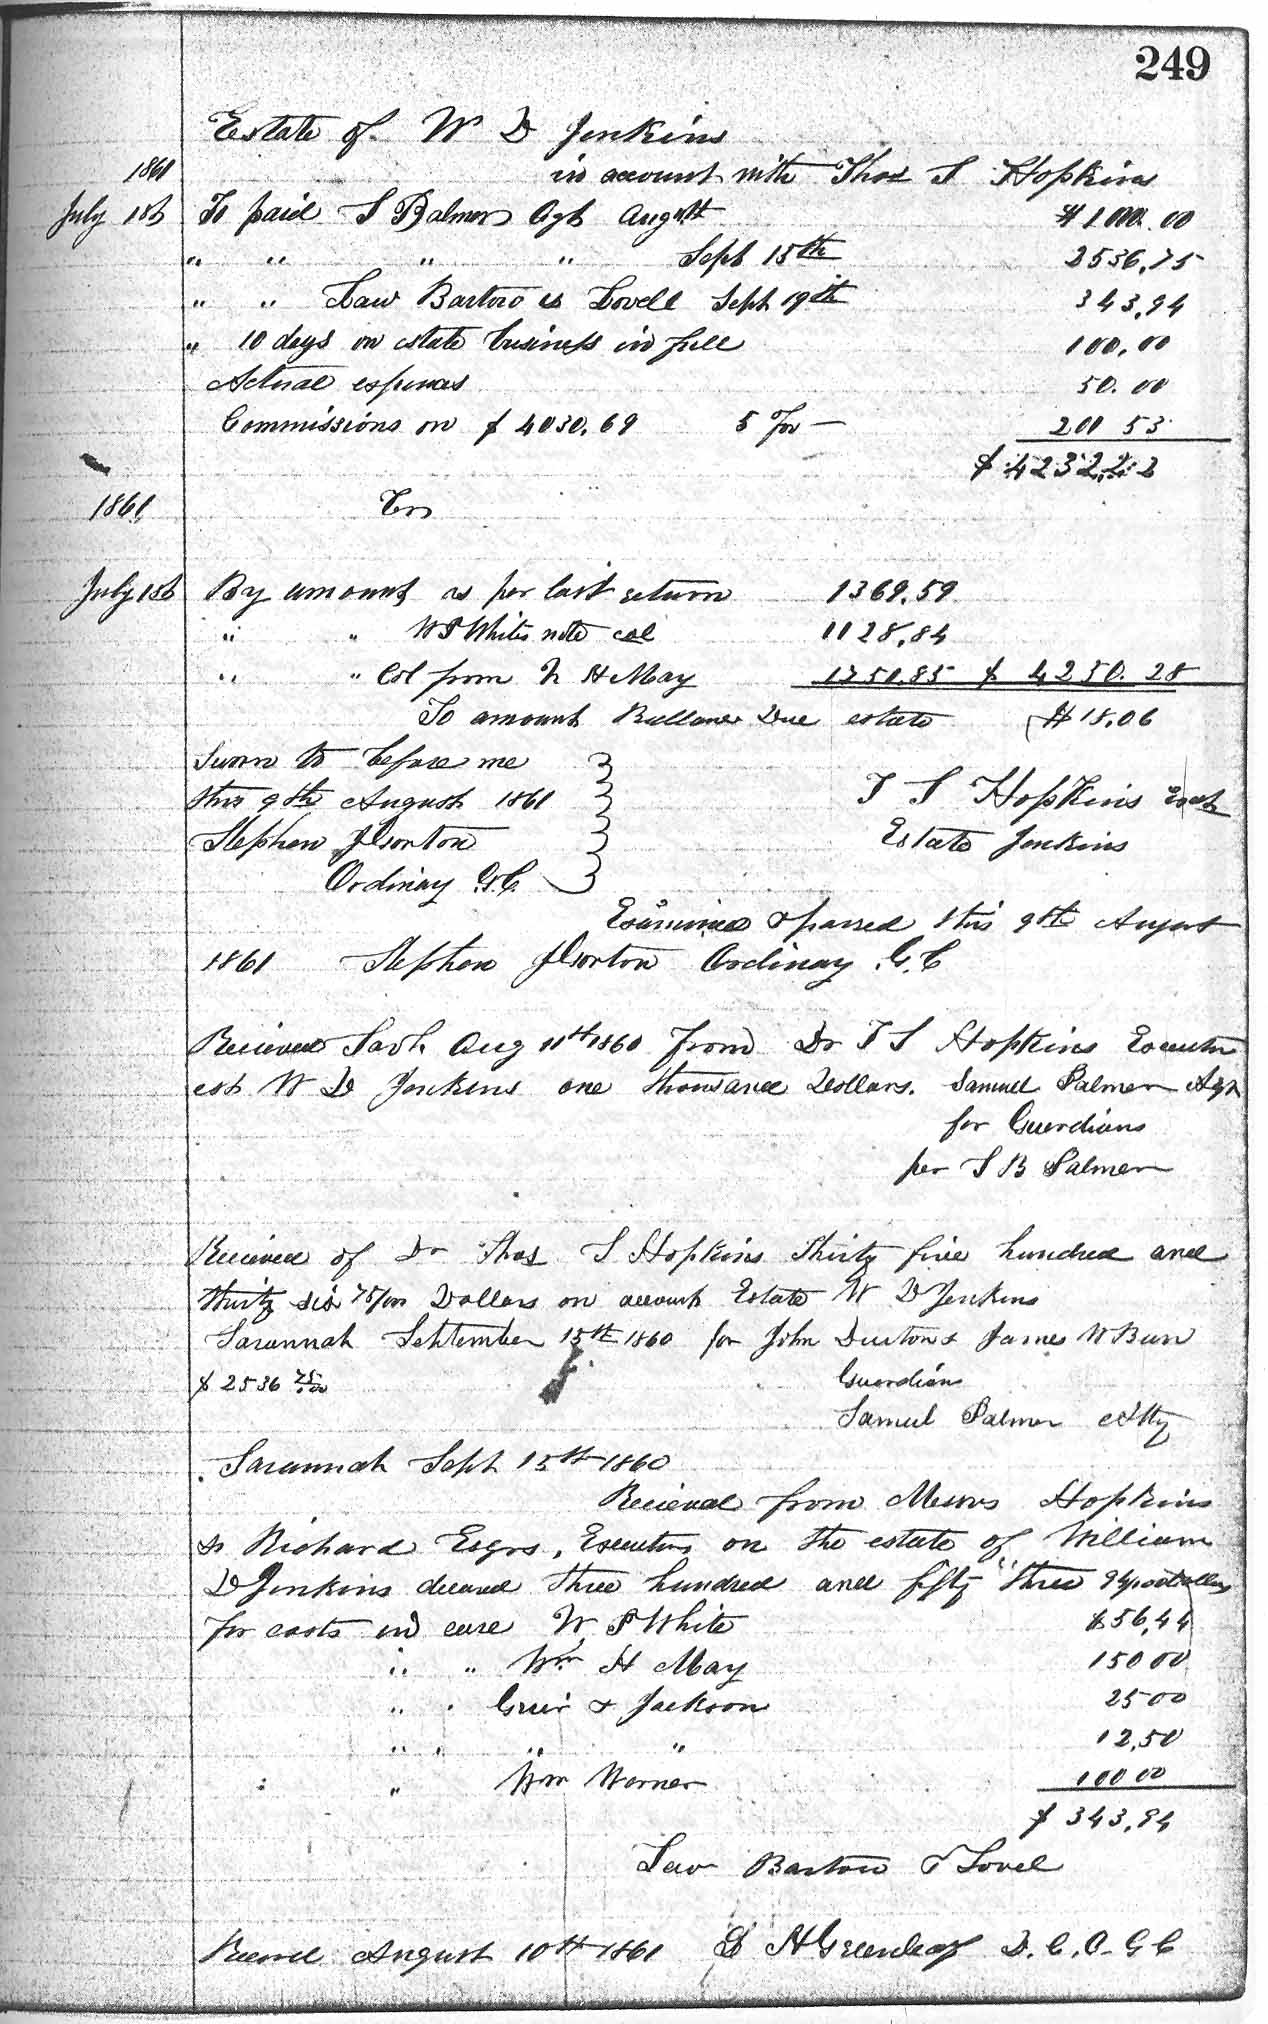 249
Estate of W D Jenkins
1861 in account with Thos S Hopkins
July 1st To paid S Palmer Agt Aug 11th $1000.00
" " " " Sept 15th 2536,75
" " Law Bartow & Lovell Sept 19th 343,94
" 10 days on estate business in full 100,00
Actual expences 50.00
Commissions on $ 4030,69 5 Per — 200 53
$ 4232,22
1861, Cr
July 1st By amount as per last return 1369.59
" " W P Whites note col 1128,84
" " Col from W H May 1750.85 $ 4250.28
To amount Ballance Due estate $18,06
Sworn to before me
this 9th August 1861 T S Hopkins Exct
Stephen J Gorton Estate Jenkins
Ordinay G.C.
Examined & passed this 9th August
1861 Stephen J Gorton Ordinay G.C
Recieved Savh Aug 11th 1860 from Dr T S Hopkins Executor
est W D Jenkins one thousand Dollars. Samuel Palmer Agt
for Guardians
per S B Palmer
Recieved of Dr Thos S Hopkins Thirty five hundred and
thirty six 75/100 Dollars on account Estate W D Jenkins
Savannah September 15th 1860 for John Burton & James W Burr
$ 2536 75/00 Guardians
Samuel Palmer Atty
Savannah Sept 15th 1860
Recieved from Messrs Hopkins
& Richard Esqrs, Executors on the estate of William
D Jenkins deceased three hundred and fifty three 94/100 dollars
for costs in case W P White $56,44
" " Wm H May 150 00
" " Grier & Jackson 25 00
" " " " 12,50
" Wm Warner 100 00
$ 343,94
Law Bartow & Lovel
Record August 10th 1861 D H Greenleaf D.C.O. G C